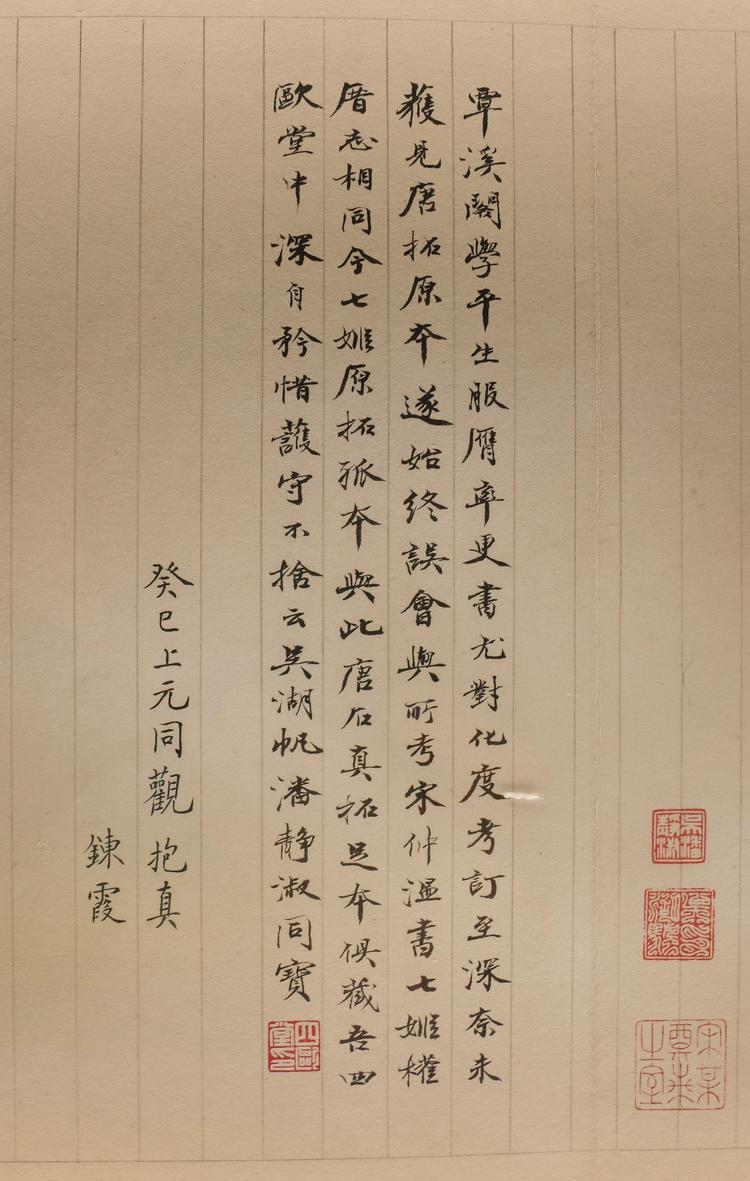 覃溪閣學平生服膺率更書尤對化度考訂至深奈未
獲見唐拓原本遂始終誤會與所考宋仲溫書七姬權
厝志相同今七姬原拓孤本與此唐石真拓足本俱藏吾四
歐堂中深自矜惜護守不捨云吳湖帆潘靜淑同寶
四歐堂印
癸巳上元同觀 抱真
鍊霞